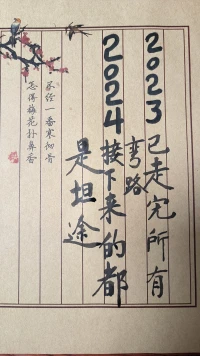 2023已走完所有
弯路
2024接下来的都
是坦途
不经一番寒彻骨
怎得梅花扑鼻香